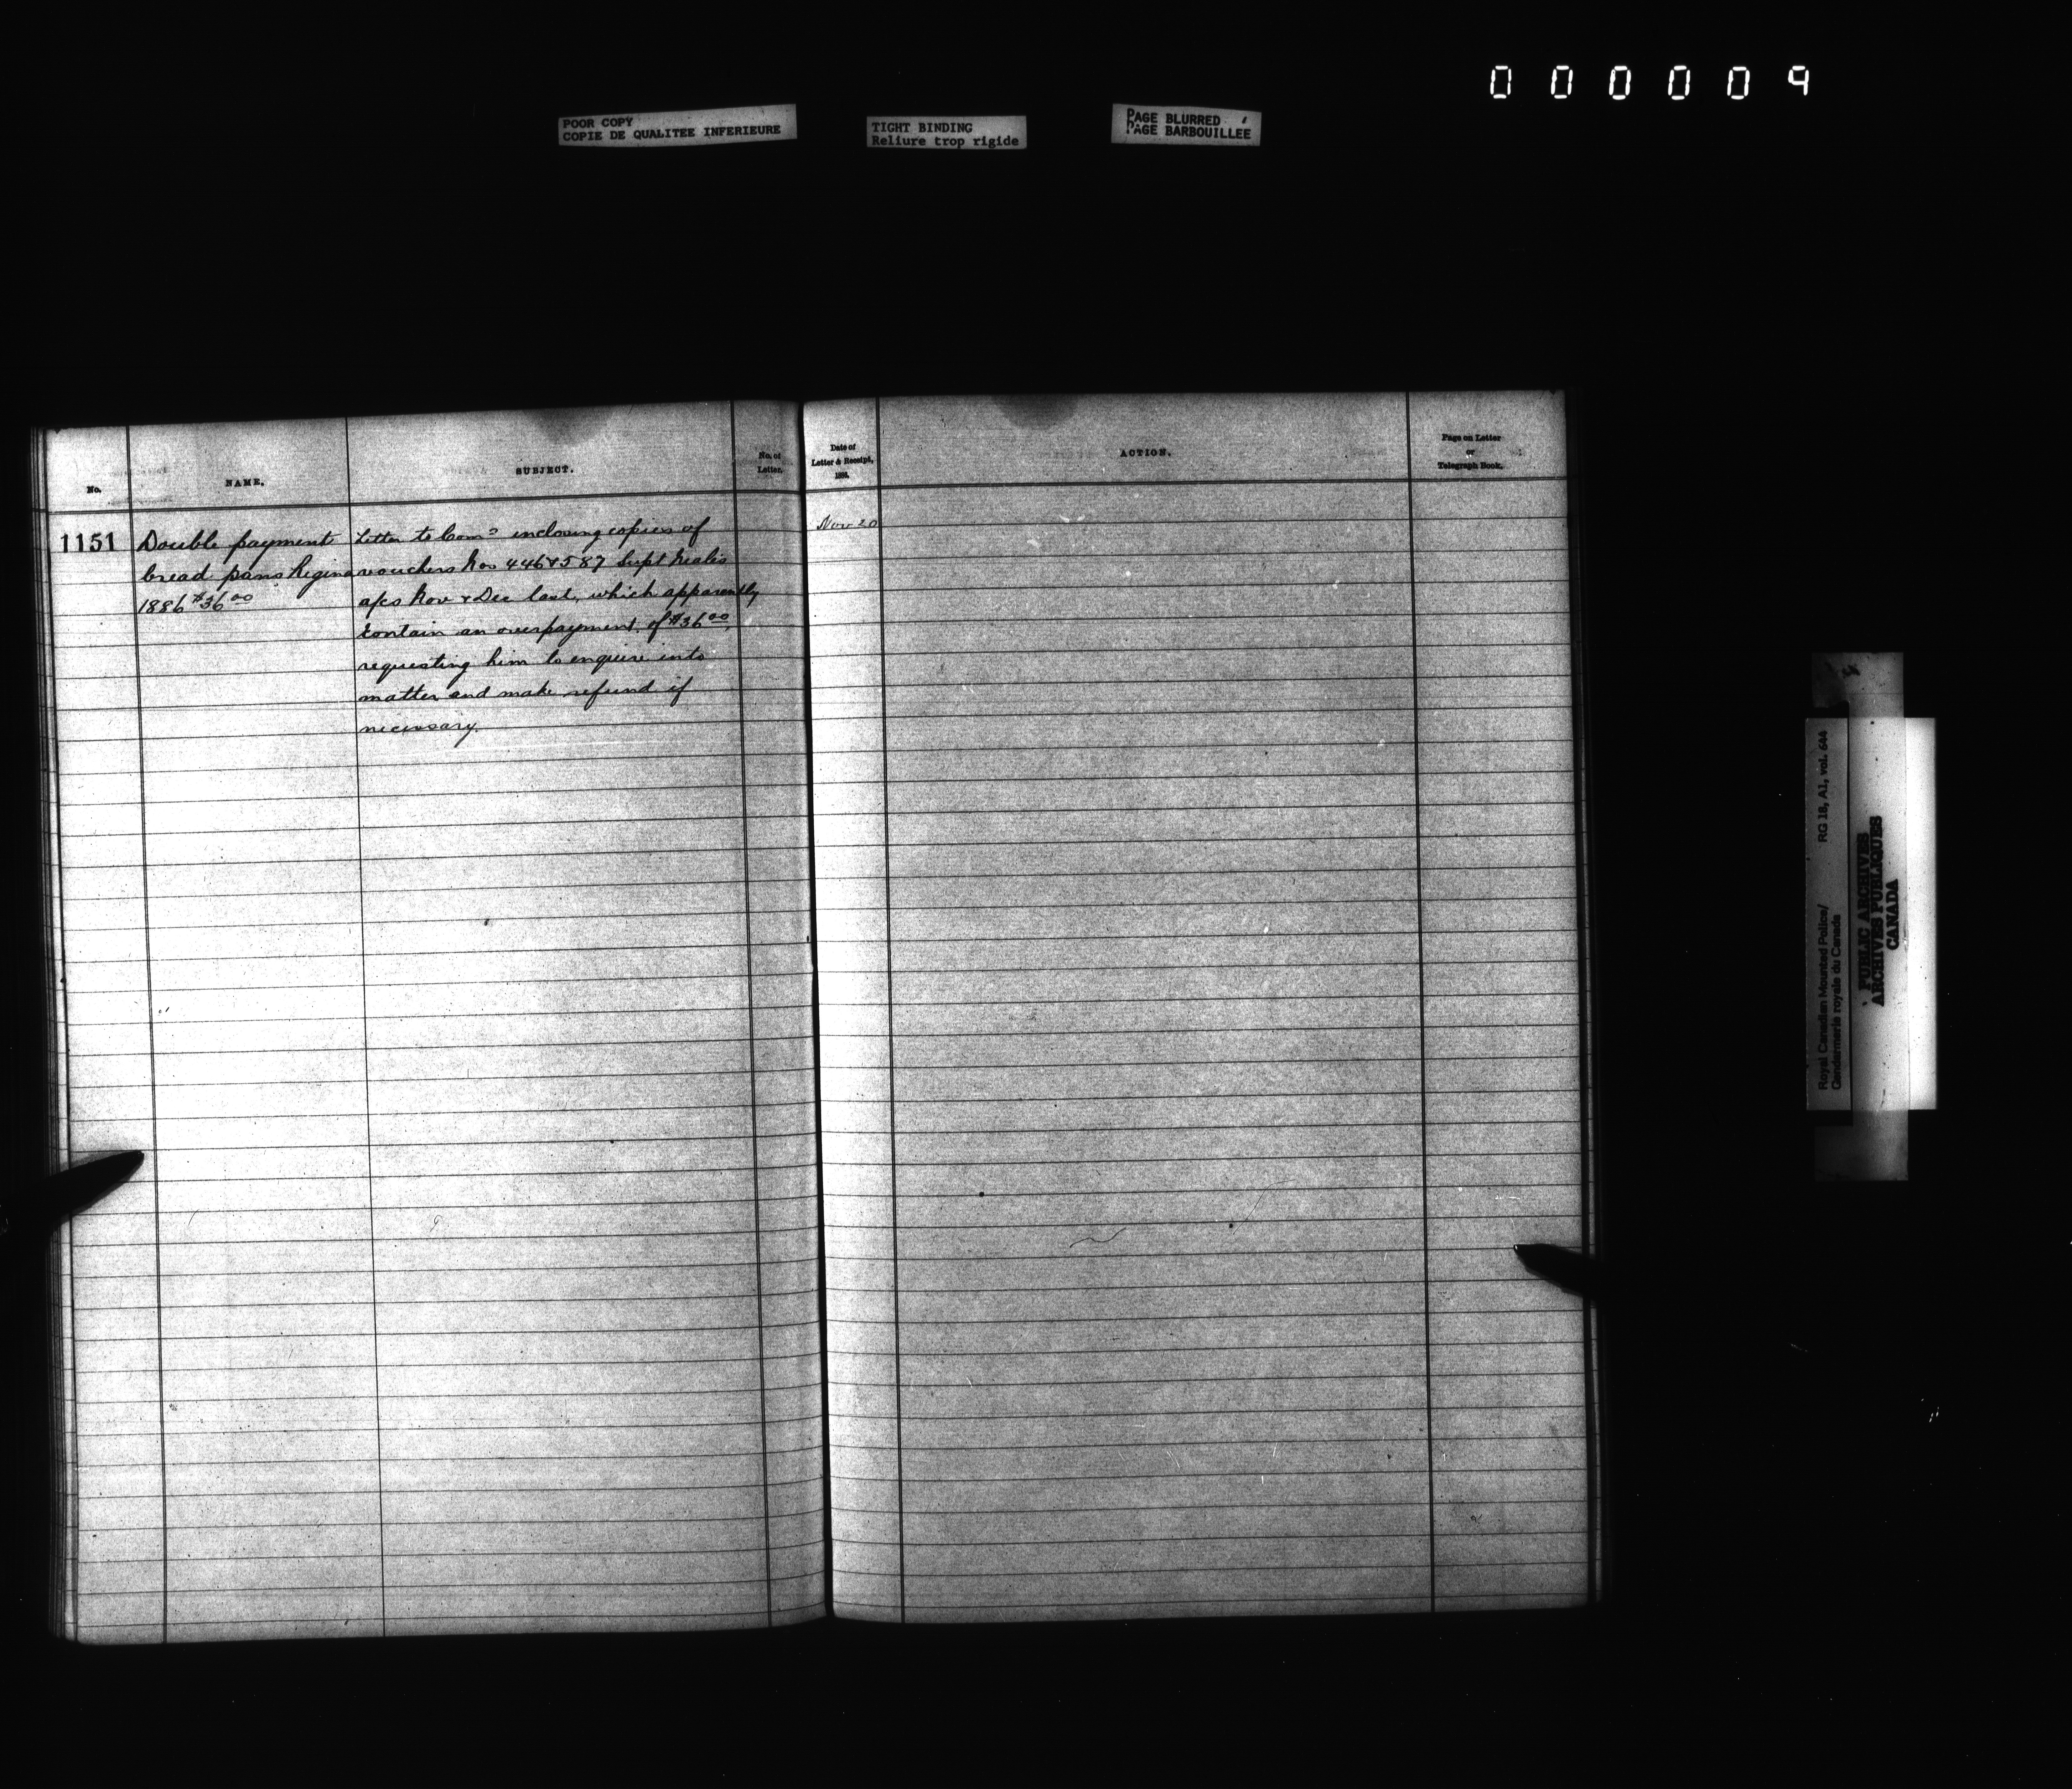 000009
POOR COPY
COPIE DE QUALITEE INFERIEURE
TIGHT BINDING
Reliure trop rigide
PAGE BLURRED
PAGE BARBOUILLEE
No.
NAME.
SUBJECT.
No. of
Letter.
Date of
Letter & Receipt,
ACTION.
Page on Letter
or
Telegraph Book.
1151
Double payment
bread pans Regina
1886 $36.00
Letter to Comr inclosing copies of
vouchers Nos 446 & 587 Supt Neales
a/cs Nov & Dec last, which apparently
contain an overpayment of $36.00,
requesting him to enquire into
matter and make refund if
necessary.
Nov 20
Royal Canadian Mounted Police/
Gendarmerie royale du Canada
RG 18, A1, vol. 644
PUBLIC ARCHIVES
ARCHIVES PUBLIQUES
CANADA